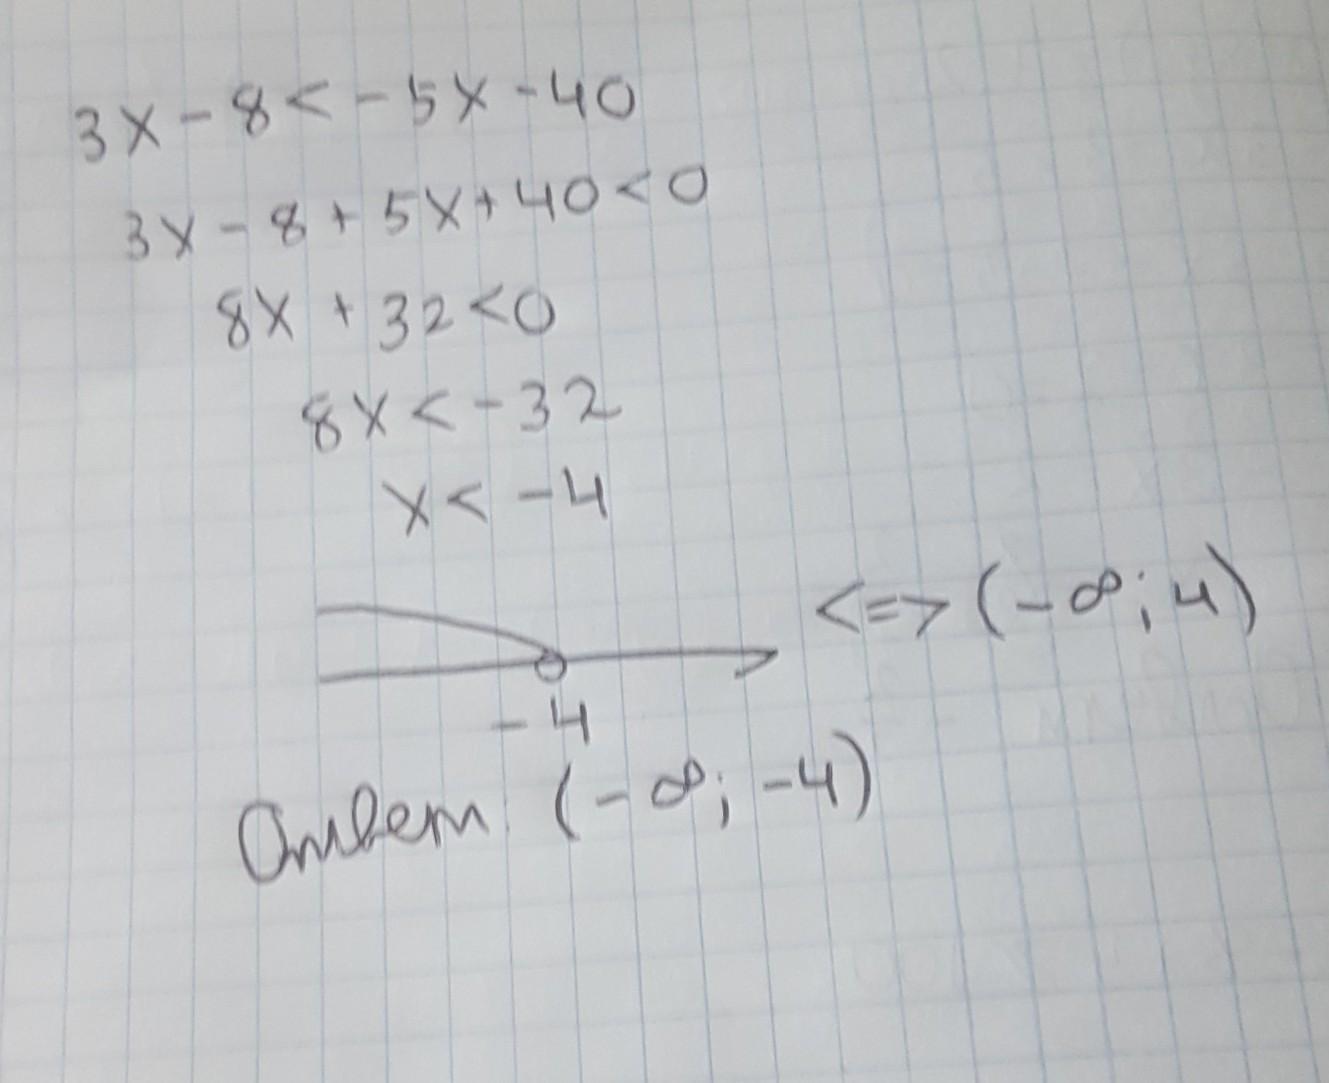 3x - 8 < - 5x - 40
3x - 8 + 5x + 40 < 0
8x + 32 < 0
8x < - 32
x < - 4
<=> (- ∞; 4)
- 4
Ответ (- ∞; -4)